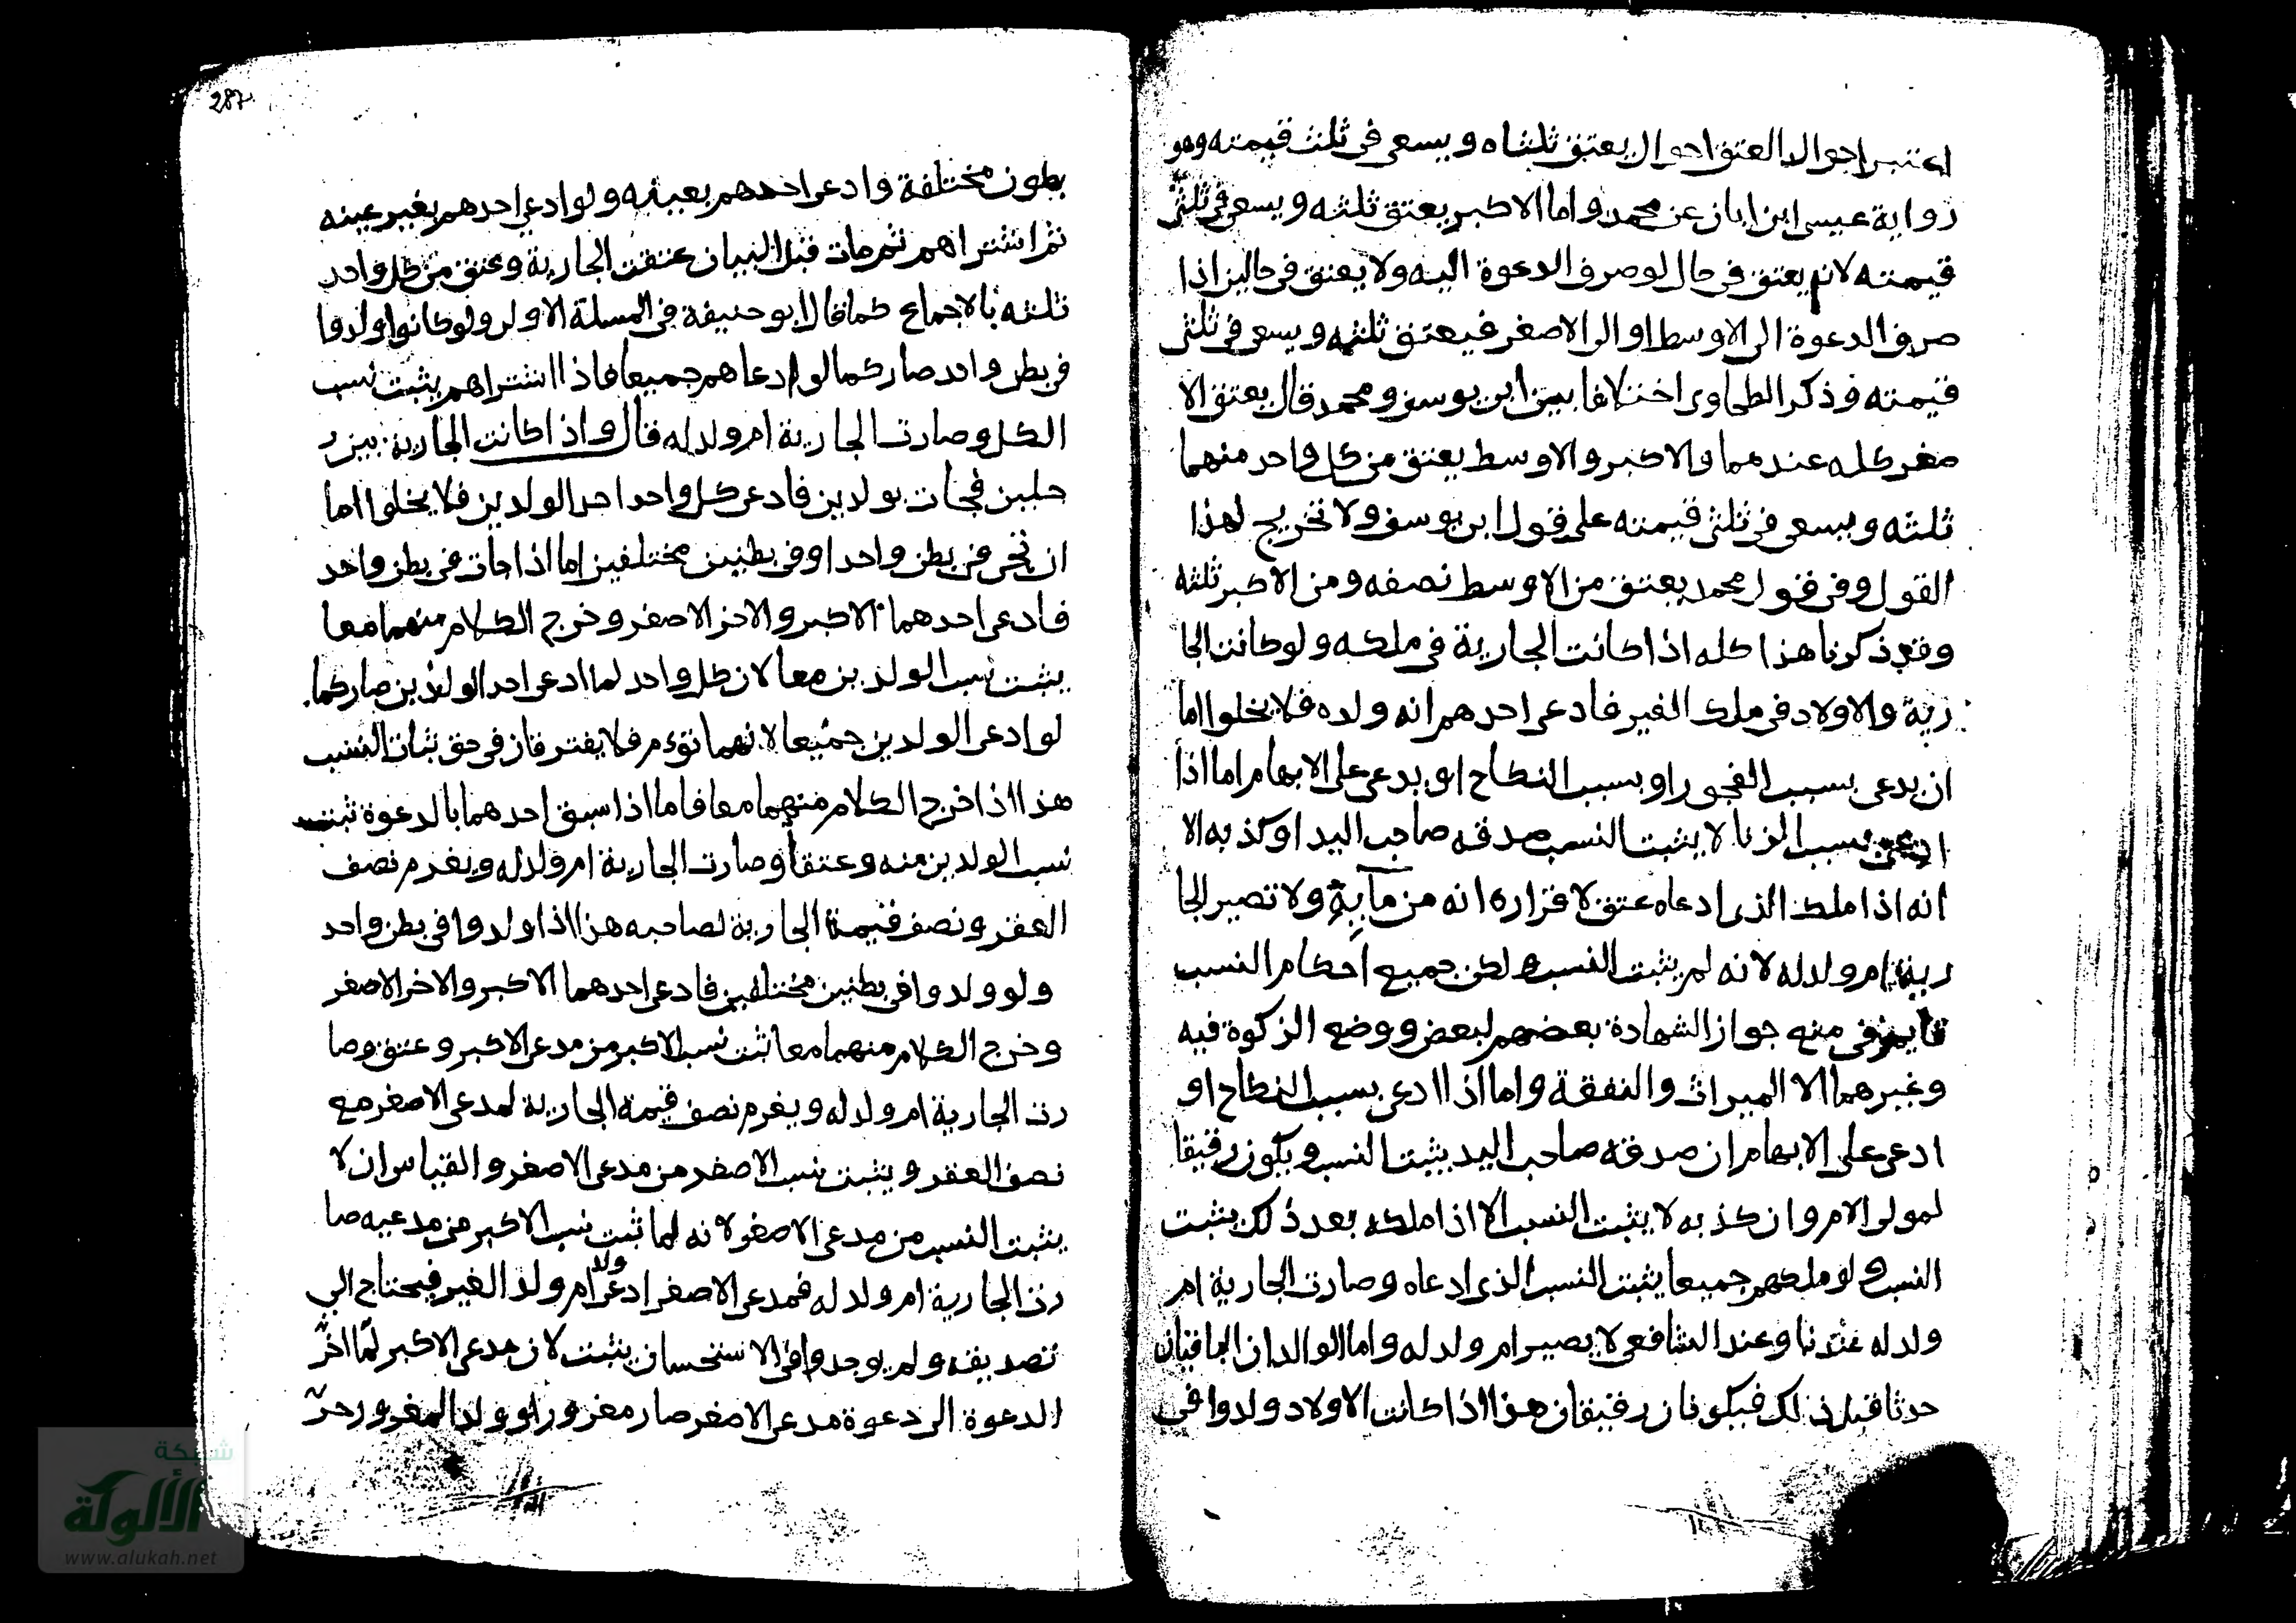 اعتبر احوال العتق احوال يعتق ثلثاه ويسعى فى ثلث قيمته وهو
رواية عيسى ابن ابان عن محمد واما الاكبر يعتق ثلثه ويسعى فى ثلثى
قيمته لانه يعتق فى حال لو صرف الدعوة اليه ولا يعتق فى حالين اذا
صرف الدعوة الى الاوسط او الى الاصغر فيعتق ثلثه ويسعى فى ثلثى
قيمته وذكر الطحاوى اختلافا بين ابى يوسف ومحمد قال يعتق الا
صغر كله عندهما والاكبر والاوسط يعتق من كل واحد منهما
ثلثه ويسعى فى ثلثى قيمته على قول ابى يوسف ولا تخريج لهذا
القول وفى قول محمد يعتق من الاوسط نصفه ومن الاكبر ثلثه
وقد ذكرنا هذا كله اذا كانت الجارية فى ملكه ولو كانت الجا
رية والاولاد فى ملك الغير فادعى احدهم انه ولده فلا يخلوا اما
ان يدعى بسبب الفجور او بسبب النكاح او يدعى على الابهام اما اذا
ادعى بسبب الزنا لا يثبت النسب صدقه صاحب اليد او كذبه الا
انه اذا ملك الذى ادعاه عتق لاقراره انه من مآيه ولا تصير الجا
رية ام ولد له لانه لم يثبت النسب لكن جميع احكام النسب
منه جواز الشهادة بعضهم لبعض ووضع الزكوة فيه
وغيرهما الا الميراث والنفقة واما اذا ادعى بسبب النكاح او
ادعى على الابهام ان صدقه صاحب اليد يثبت النسب ويكون رقيقا
لمولى الام وان كذبه لا يثبت النسب الا اذا ملكه بعد ذلك يثبت
النسب ولو ملكهم جميعا يثبت النسب الذى ادعاه وصارت الجارية ام
ولد له عندنا وعند الشافعى لا يصير ام ولد له واما الوالدان الباقيان
حدثا قبل ذلك فيكونان رقيقان هذا اذا كانت الاولاد ولدوا فى
287
بطون مختلفة وادعى احدهم بعينه ولو ادعى احدهم بغير عينه
ثم اشتراهم ثم مات قبل البيان عتقت الجارية وعتق من كل واحد
ثلثه بالاجماع كما قال ابو حنيفة فى المسلة الاولى ولو كانوا ولدوا
فى بطن واحد صار كما لو ادعاهم جميعا فاذا اشتراهم يثبت نسب
الكل وصارت الجارية ام ولد له قال واذا كانت الجارية بين ر
جلين فجات بولدين فادعى كل واحد احد الولدين فلا يخلوا اما
ان تجى فى بطن واحد او فى بطنين مختلفين اما اذا جات فى بطن واحد
فادعى احدهما الاكبر والاخر الاصغر وخرج الكلام منهما معا
يثبت نسب الولدين معا لان كل واحد لما ادعى احد الولدين صار كما
لو ادعى الولدين جميعا لانهما توءم فلا يفترقان فى حق ثبات النسب
هذا اذا خرج الكلام منهما معا فاما اذا سبق احدهما بالدعوة ثبت
نسب الولدين منه وعتقا وصارت الجارية ام ولد له ويغرم نصف
العقر ونصف قيمة الجارية لصاحبه هذا اذا ولدوا فى بطن واحد
ولو ولدوا فى بطنين مختلفين فادعى احدهما الاكبر والاخر الاصغر
وخرج الكلام منهما معا ثبت نسب الاكبر من مدعى الاكبر وعتق وصا
رت الجارية ام ولد له ويغرم نصف قيمة الجارية لمدعى الاصغر مع
نصف العقر ويثبت نسب الاصغر من مدعى الاصغر والقياس ان لا
يثبت النسب من مدعى الاصغر لانه لما ثبت نسب الاكبر من مدعيه صا
رت الجارية ام ولد له فمدعى الاصغر ادعى ولد ام ولد الغير فيحتاج الى
تصديقه ولم يوجد وفى الاستحسان يثبت لان مدعى الاكبر لما اخّر
الدعوة الى دعوة مدعى الاصغر صار مغرورا وولد المغرور حرّ
شبكة
الألوكة
www.alukah.net